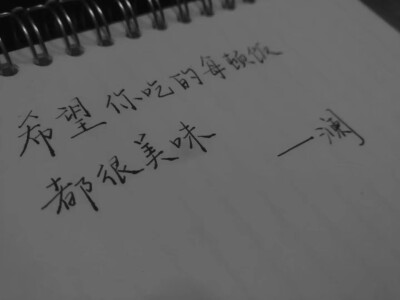 希望你吃的每顿饭
都很美味
一澜